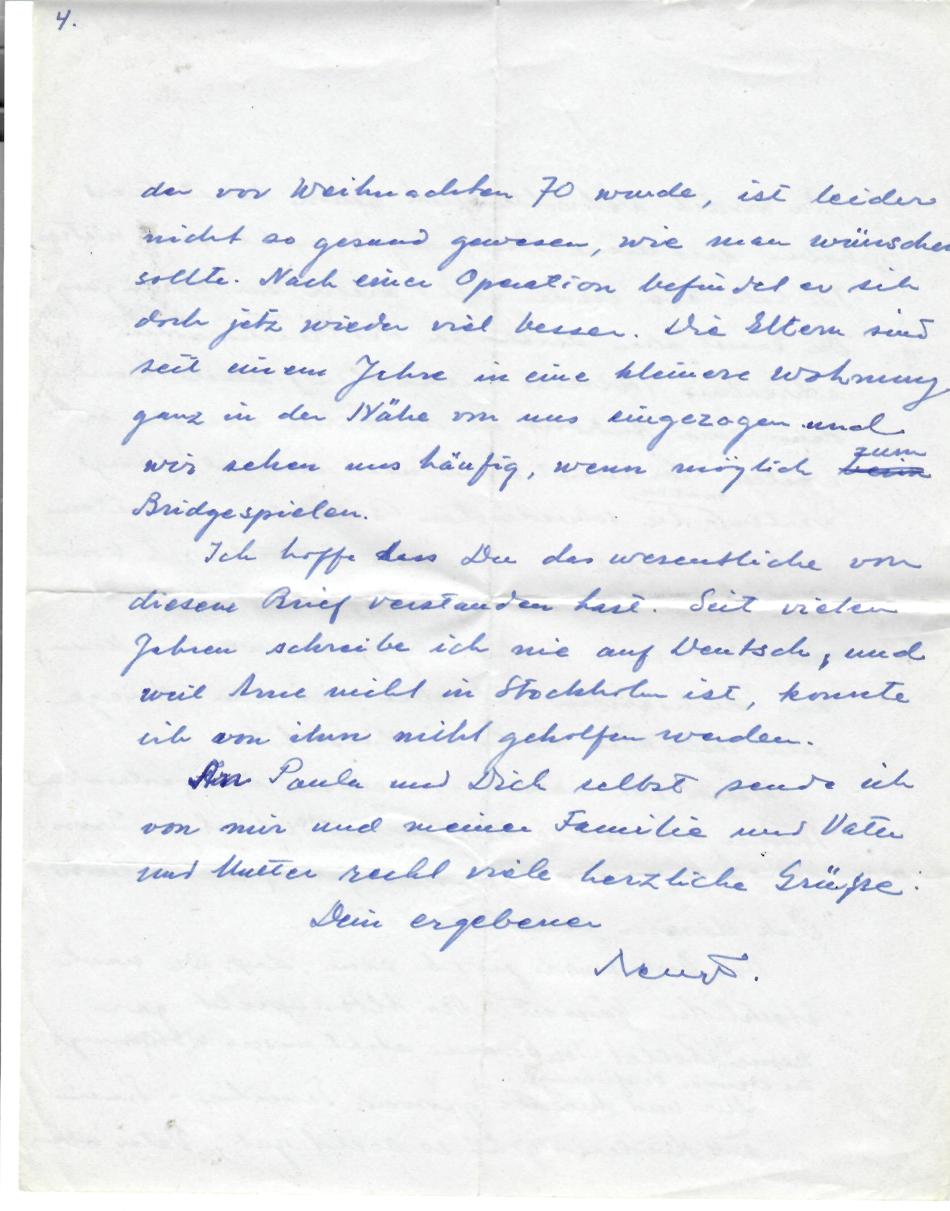 4.
der vor Weihnachten 70 wurde, ist leider
nicht so gesund gewesen, wie man wünschen
sollte. Nach einer Operation befindet er sich
doch jetz wieder viel besser. Die Eltern sind
seit einem Jahre in eine kleinere Wohnung
ganz in der Nähe von uns eingezogen und
wir sehen uns häufig, wenn möglich zum
Bridgespielen.
Ich hoffe dass Du das wesentliche von
diesem Brief verstanden hast. Seit vielen
Jahren schreibe ich nie auf Deutsch, und
weil Arne nicht in Stockholm ist, konnte
ich von ihm nicht geholfen werden.
An Paula und Dich selbst sende ich
von mir und meiner Familie und Vater
und Mutter recht viele herzliche Grüsse.
Dein ergebener